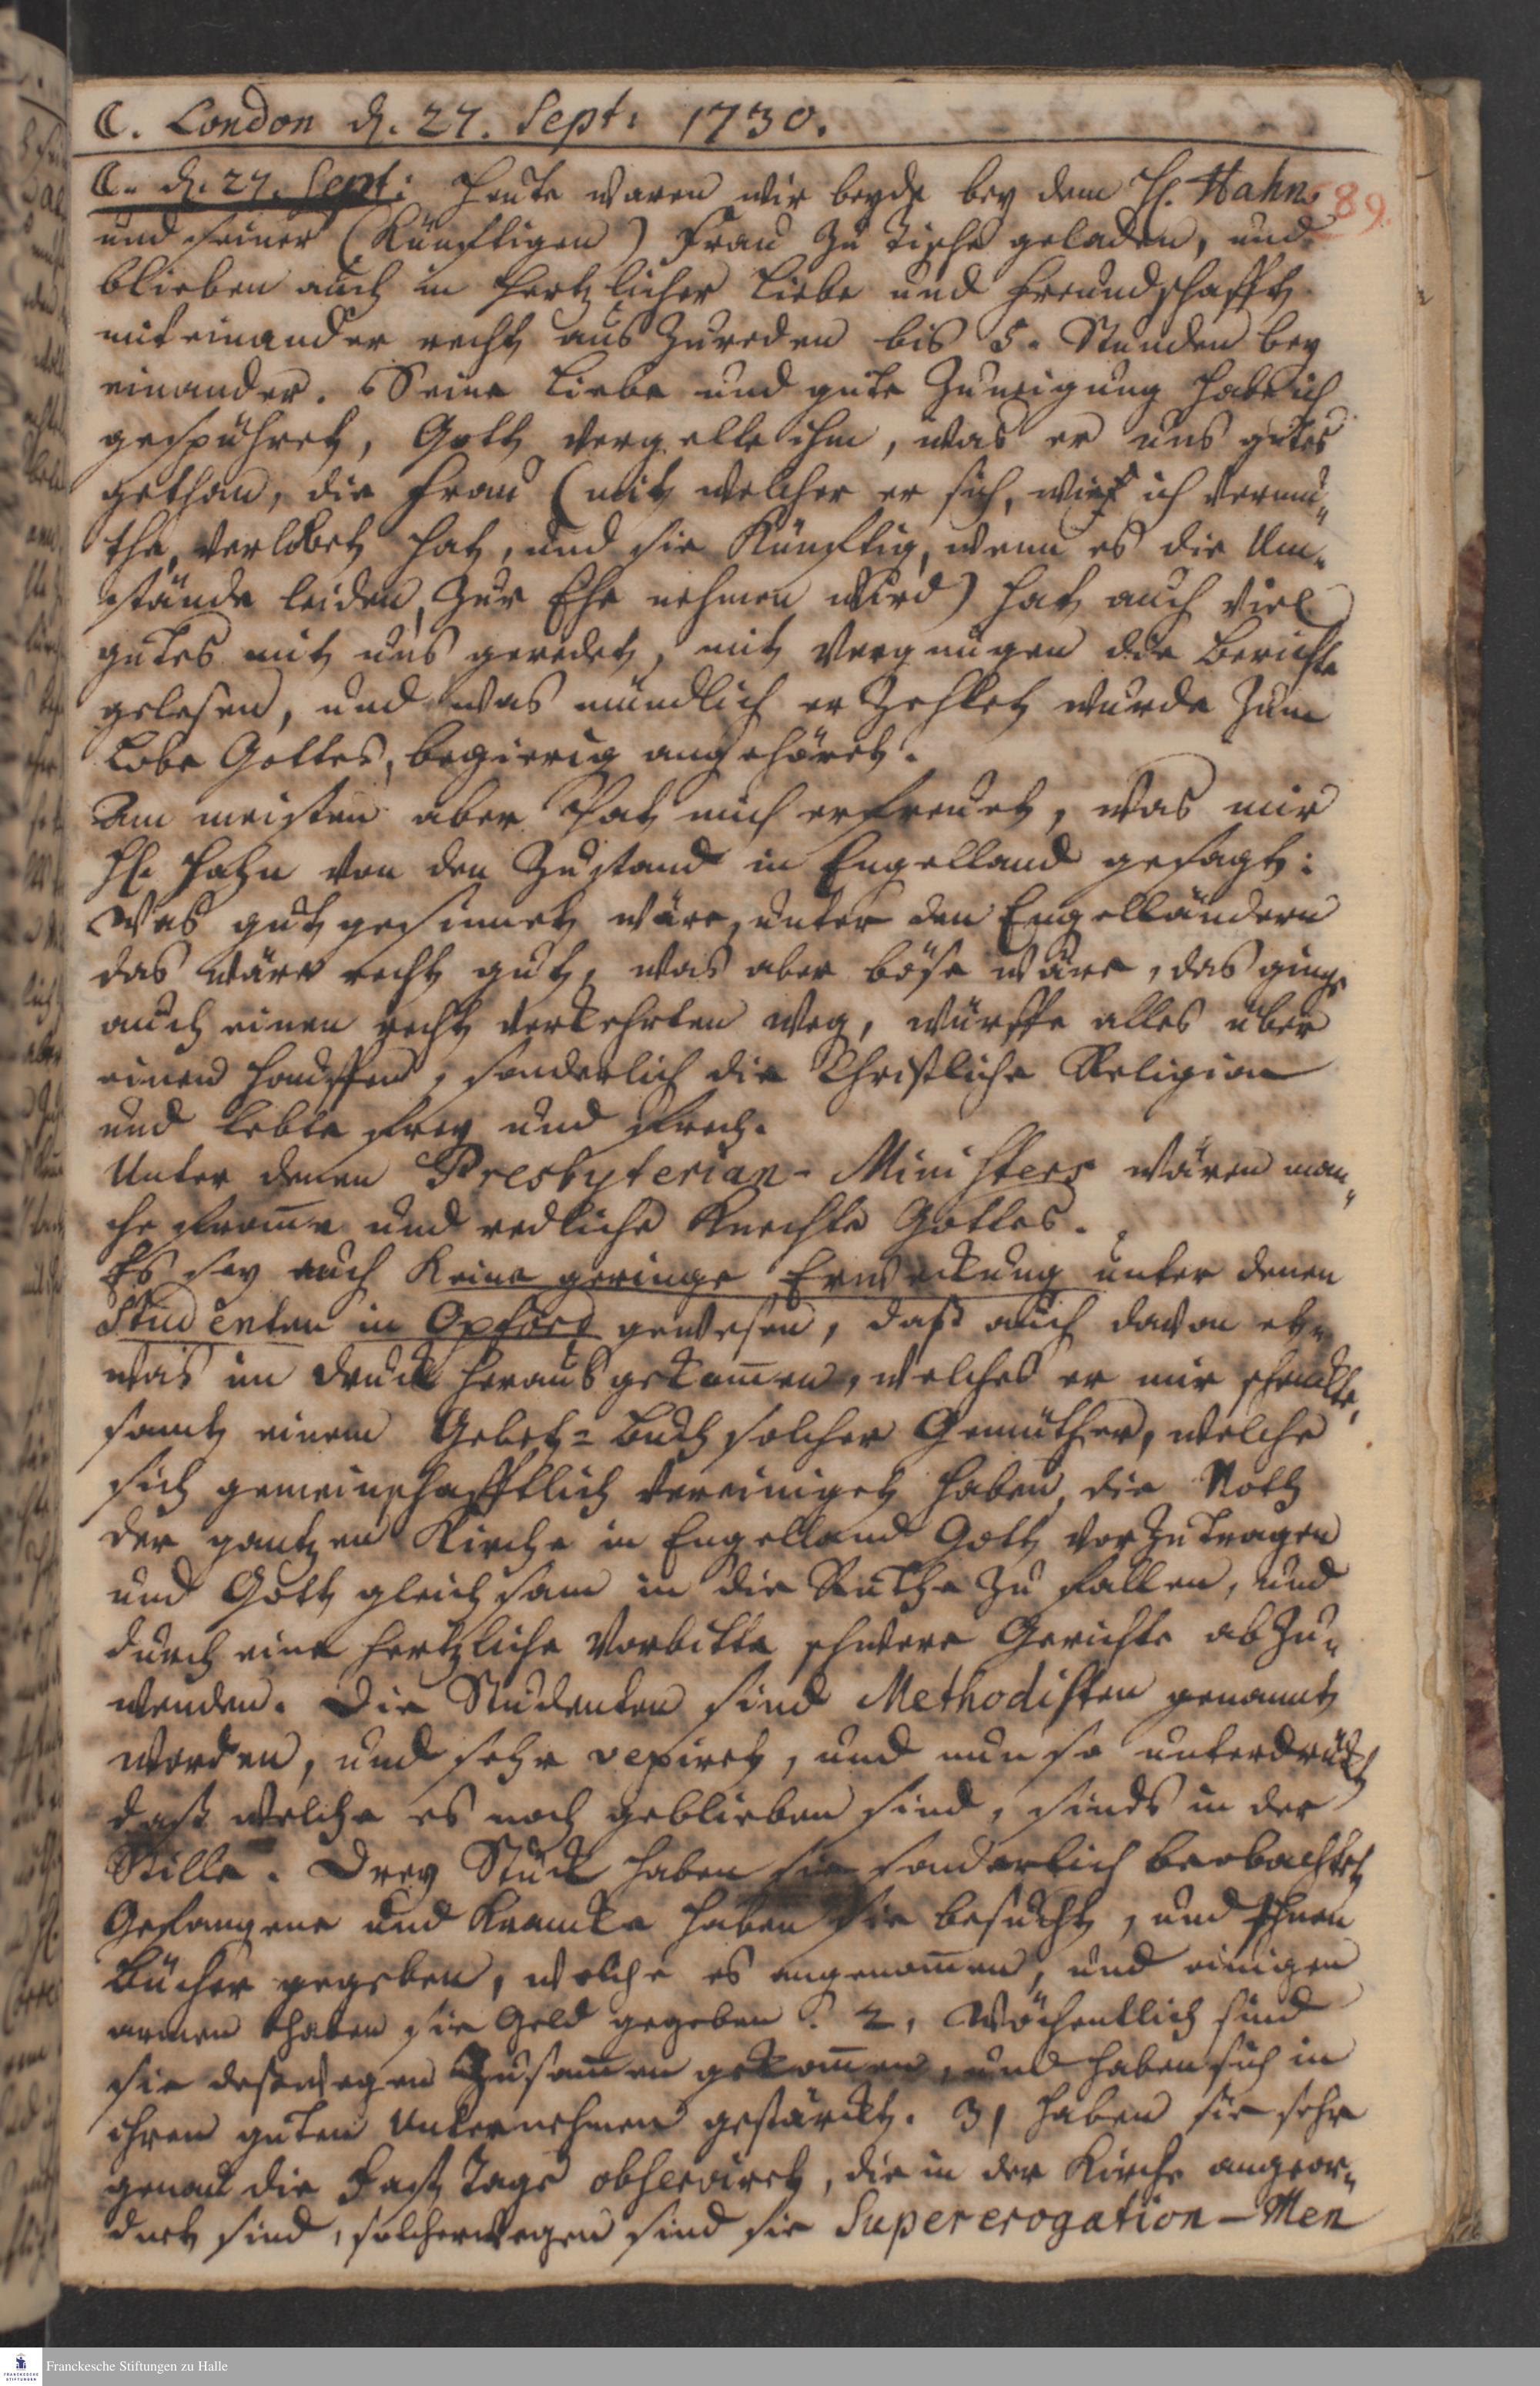 ☾. London d. 27. Sept: 1730.
☾. d. 27. Sept: Heute waren wir beyde bey dem H. Hahn
89.
und seiner (Künfftigen) Frau zu Tische geladen, und
blieben auch in hertzlicher Liebe und Freundschafft
miteinander recht aus zureden bis 5. Stunden bey
einander. Seine Liebe und gute Zuneigung habe ich
gespühret, Gott vergelte ihm, was er uns gutes
gethan, die Frau (mit welcher er sich, wie ich vermu„
the, verlobet hat, und sie Künftig, wenn es die Um„
stände leiden, zur Ehe nehmen wird) hat auch viel
gutes mit uns geredet, mit Vergnügen die Berichte
gelesen, und was mündlich erzehlet wurde zum
Lobe Gottes, begierig angehöret.
Am meisten aber hat mich erfreuet, was mir
H. Hahn von den Zustand in Engelland gesagt:
Was gut gesinnet wäre, unter den Engelländern
das wäre recht gut, was aber böse wäre, das ginge
auch einen recht verkehrten Weg, würffe alles über
einen Hauffen, sonderlich die Christliche Religion
und lebte frey und frech.
Unter denen Presbyterian-Ministers wären man„
che from̅e und redliche Knechte Gottes.
Es sey auch Keine geringe Erweckung unter denen
Studenten in Oxford gewesen, daß auch davon et„
was im Druck herausgekom̅en, welches er mir schenckte,
samt einem Gebet= Buch solcher Gemüther, welche
sich gemeinschafftlich vereiniget haben, die Noth
der gantzen Kirche in Engelland Gott vorzutragen
und Gott gleichsam in die Ruthe zu fallen, und
durch eine hertzliche Vorbitte schwere Gerichte abzu„
wenden. Die Studenten sind Methodisten genannt
worden, und sehr vexiret, und nun so unterdrückt
daß welche es noch geblieben sind, sinds in der
Stille. Drey Stück haben sie sonderlich beobachtet
Gefangene und Krancke haben sie besucht, und Ihnen
Bücher gegeben, welche es angenom̅en, und einigen
armen haben sie Geld gegeben. 2, Wöchentlich sind
sie deßwegen Zusam̅en gekom̅en, und haben sich in
ihren guten Unternehmen gestärckt. 3, haben sie sehr
genau die Fast Tage observiret, die in der Kirche angeor„
dnet sind, solcherwegen sind sie Supererogation-Men
Franckesche Stiftungen zu Halle